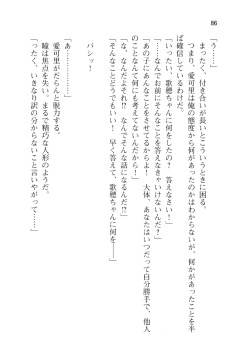 86
「う……」
まったく、付き合いが長いとこういうときに困る。
つまり、愛可里は俺の態度から何があったのかはわからないが、何かがあったことを半
ば確信しているわけだ。
「いったい、歌穂ちゃんに何をしたの？　答えなさい！」
「……なんでお前にそんなことを答えなきゃいけないんだ！」
「あの子にあんなことをさせてるからよ！　大体、あなたはいつだって自分勝手で、他人
のことなんて何にも考えてないんだから！」
「な、なんだよそれ!?　なんでそんな話になるんだ!?」
「そんなことどうでもいい！　早く答えて、歌穂ちゃんに何を――」
パシッ！
「あ…………」
愛可里がだらんと脱力する。
瞳は焦点を失い、まるで精巧な人形のようだ。
「ったく、いきなり訳の分からないこと言いやがって……」